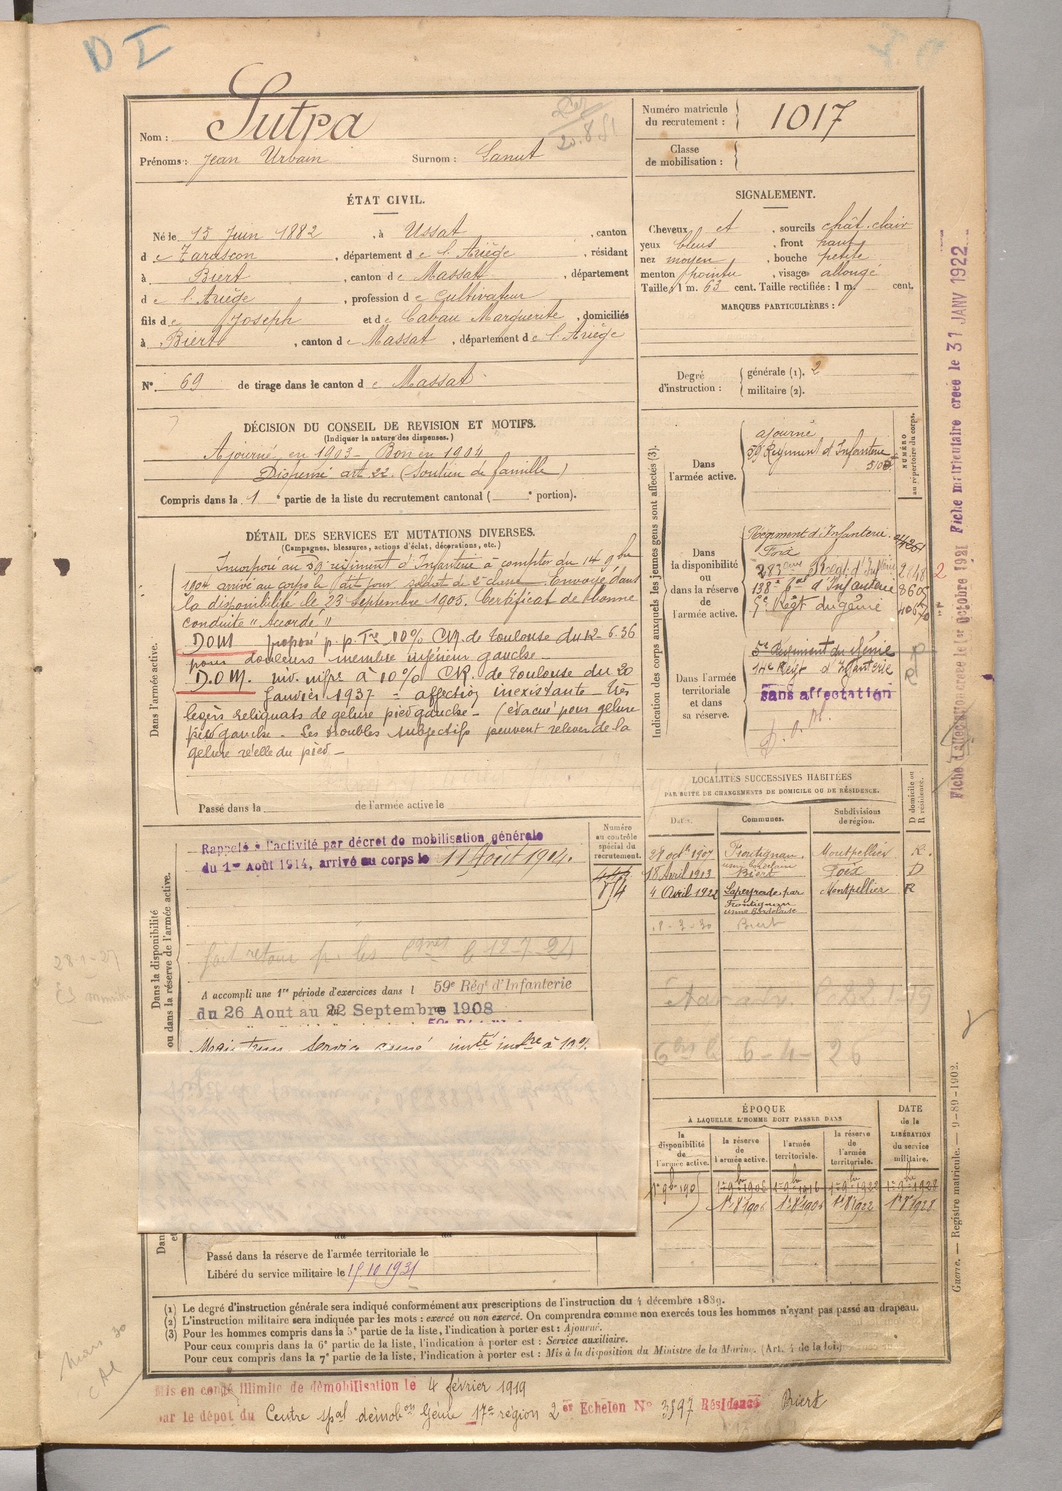 D I
Nom : Sutra
Prénoms : Jean Urbain Surnom : Canut
Numéro matricule
du recrutement : 1017
Classe
de mobilisation :
ÉTAT CIVIL.
Né le 15 Juin 1882, à Ussat, canton
de Tarascon, département de l'Ariège, résidant
à Biert, canton de Massat, département
de l'Ariège, profession de Cultivateur
fils de Joseph et de Cabau Marguerite, domiciliés
à Biert, canton de Massat, département de l'Ariège
N° 69 de tirage dans le canton de Massat
SIGNALEMENT.
Cheveux et sourcils chât. clair
yeux bleus, front haut
nez moyen, bouche petite
menton pointu, visage allongé
Taille 1 m. 63 cent. Taille rectifiée : 1 m. cent.
MARQUES PARTICULIÈRES :
Degré
d'instruction :
générale (1). 2
militaire (2).
DÉCISION DU CONSEIL DE REVISION ET MOTIFS.
(Indiquer la nature des dispenses.)
Ajourné en 1903 - Bon en 1904
Dispensé art. 22 (Soutien de famille)
Compris dans la 1e partie de la liste du recrutement cantonal ( e portion).
DÉTAIL DES SERVICES ET MUTATIONS DIVERSES.
(Campagnes, blessures, actions d'éclat, décorations, etc.)
Dans l'armée active.
Incorporé au 59e régiment d'Infanterie à compter du 14 9bre
1904 arrivé au corps le dit jour soldat de 2e classe. Envoyé dans
la disponibilité le 23 Septembre 1905. Certificat de bonne
conduite "Accordé"
DOM proposé p. p. Tre 10% CR. de Toulouse du 12-6-36
pour douleurs membre inférieur gauche -
D.O.M. inv. infre à 10% CR. de Toulouse du 20
Janvier 1937 - affection inexistante - très
légers reliquats de gelure pied gauche - (évacué pour gelure
pied gauche - Les troubles subjectifs peuvent relever de la
gelure réelle du pied -
Passé dans la de l'armée active le
Indication des corps auxquels les jeunes gens sont affectés (3).
NUMÉRO
au répertoire du corps.
Dans
l'armée active.
ajourné
59 Régiment d'Infanterie
Dans
la disponibilité
ou
dans la réserve
de
l'armée active.
Régiment d'Infanterie
Foix
283eme Regt d'Infrie
138e Rgt d'Infanterie
5e Régt du génie
Dans l'armée
territoriale
et dans
sa réserve.
5e Régiment du Génie
14e Régt d'Infanterie
sans affectation
D. O. M.
Fiche d'affectation créée le 1er octobre 1921 Fiche matriculaire créée le 31 JANV 1922
LOCALITÉS SUCCESSIVES HABITÉES
PAR SUITE DE CHANGEMENTS DE DOMICILE OU DE RÉSIDENCE.
Dates. Communes. Subdivisions
de région. D domicile ou
R résidence.
Frontignan Montpellier R.
18 Avril 1913 Biert Foix D
4 Avril 1922 Lapeyrade par
Frontignan Montpellier R
8-3-30 Biert
6-4-26
Dans la disponibilité
ou dans la réserve de l'armée active.
Numéro
au contrôle
spécial du
recrutement.
Rappelé à l'activité par décret de mobilisation générale
du 1er Août 1914, arrivé au corps le 11 Août 1914.
A accompli une 1re période d'exercices dans l 59e Régt d'Infanterie
du 26 Aout au 22 Septembre 1908
ÉPOQUE
À LAQUELLE L'HOMME DOIT PASSER DANS
DATE
de la
LIBÉRATION
du service
militaire.
la
disponibilité
de
l'armée active.
la réserve
de
l'armée active.
l'armée
territoriale.
la réserve
de
l'armée
territoriale.
Passé dans la réserve de l'armée territoriale le
Libéré du service militaire le 15 10 1931
(1) Le degré d'instruction générale sera indiqué conformément aux prescriptions de l'instruction du 4 décembre 1889.
(2) L'instruction militaire sera indiquée par les mots : exercé ou non exercé. On comprendra comme non exercés tous les hommes n'ayant pas passé au drapeau.
(3) Pour les hommes compris dans la 5e partie de la liste, l'indication à porter est : Ajourné.
Pour ceux compris dans la 6e partie de la liste, l'indication à porter est : Service auxiliaire.
Pour ceux compris dans la 7e partie de la liste, l'indication à porter est : Mis à la disposition du Ministre de la Marine. (Art. 4 de la loi)
Guerre. — Registre matricule. — 9-89-1902.
Mis en congé illimité de démobilisation le 4 février 1919
par le dépôt du Centre spal démobon Génie 17e région 2 er Echelon N° 3597 Résidence Biert